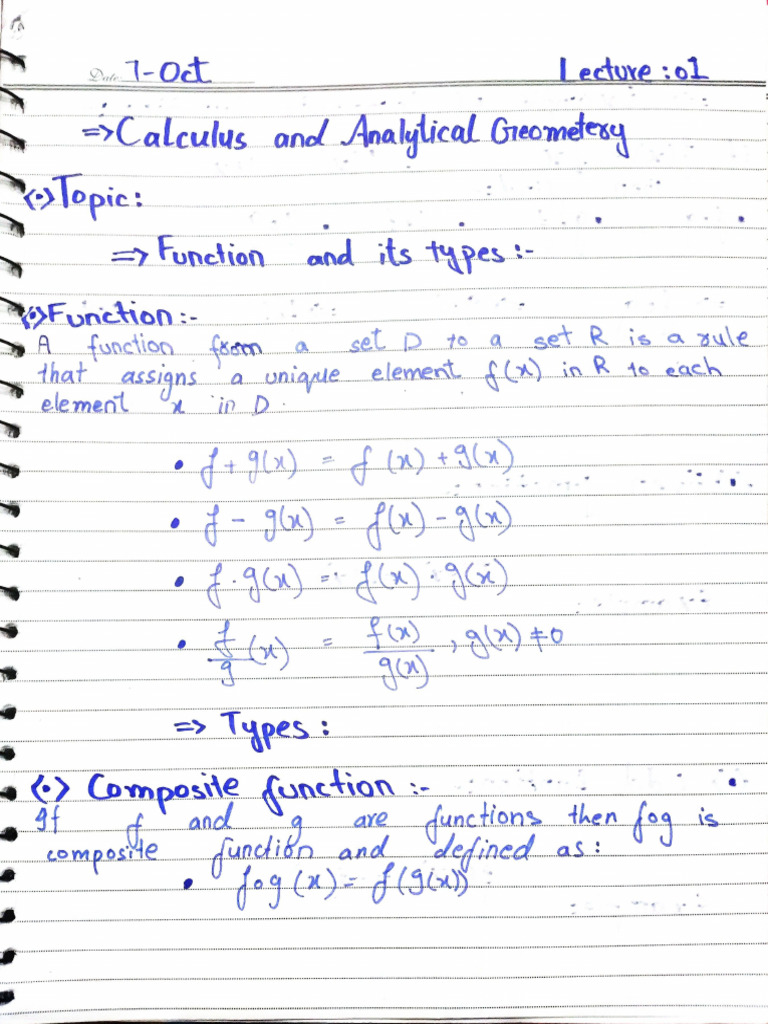 Date: 7-Oct Lecture : 01
=> Calculus and Analytical Geometery
<•> Topic :
=> Function and its types :-
<•> Function :-
A function from a set D to a set R is a rule
that assigns a unique element f(x) in R to each
element x in D.
• f + g(x) = f(x) + g(x)
• f - g(x) = f(x) - g(x)
• f . g(x) = f(x) . g(x)
• f/g (x) = f(x)/g(x) , g(x) ≠ 0
=> Types :
<•> Composite function :-
If f and g are functions then fog is
composite function and defined as :
• fog (x) = f(g(x))